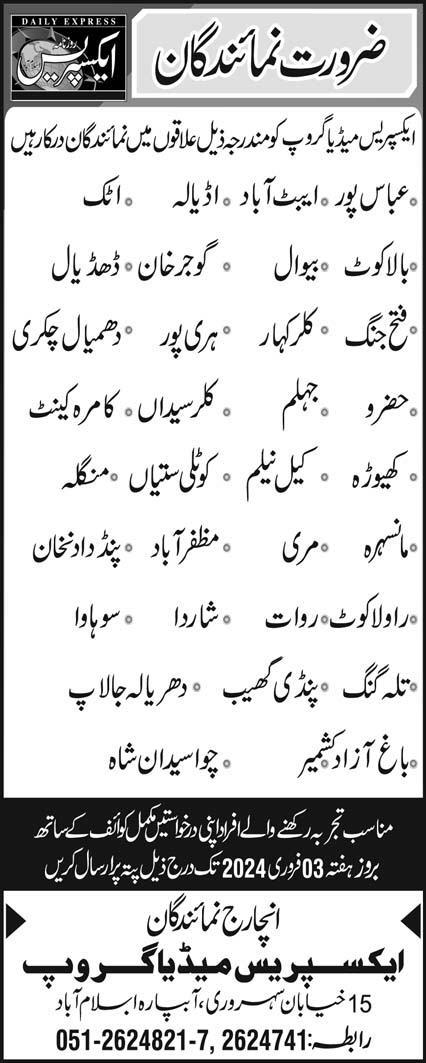 DAILY EXPRESS
روزنامہ
ایکسپریس
ضرورت نمائندگان
ایکسپریس میڈیا گروپ کو مندرجہ ذیل علاقوں میں نمائندگان درکار ہیں
• عباس پور • ایبٹ آباد • اڈیالہ • اٹک
• بالاکوٹ • بیوال • گوجرخان • ڈھڈیال
• فتح جنگ • کلرکہار • ہری پور • دھمیال چکری
• حضرو • جہلم • کلرسیداں • کامرہ کینٹ
• کھیوڑہ • کیل نیلم • کوٹلی ستیاں • منگلہ
• مانسہرہ • مری • مظفرآباد • پنڈ دادنخان
• راولاکوٹ • روات • شاردا • سوہاوا
• تلہ گنگ • پنڈی گھیب • دھریالہ جالاپ
• باغ آزاد کشمیر • چواسیدان شاہ
مناسب تجربہ رکھنے والے افراد اپنی درخواستیں مکمل کوائف کے ساتھ
بروز ہفتہ 03 فروری 2024 تک درج ذیل پتہ پر ارسال کریں
انچارج نمائندگان
ایکسپریس میڈیا گروپ
15 خیابان سہروری، آبپارہ اسلام آباد
رابطہ: 051-2624821-7, 2624741